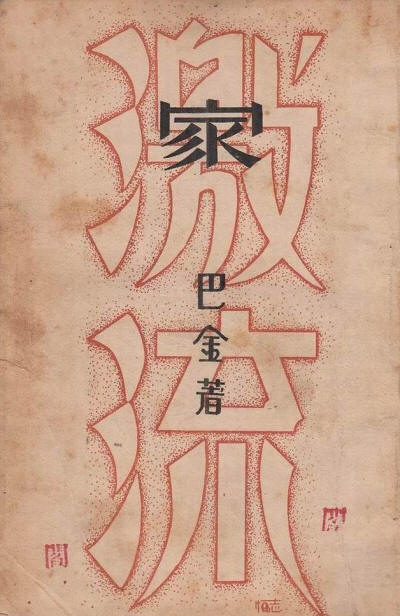 激流
家
巴金著